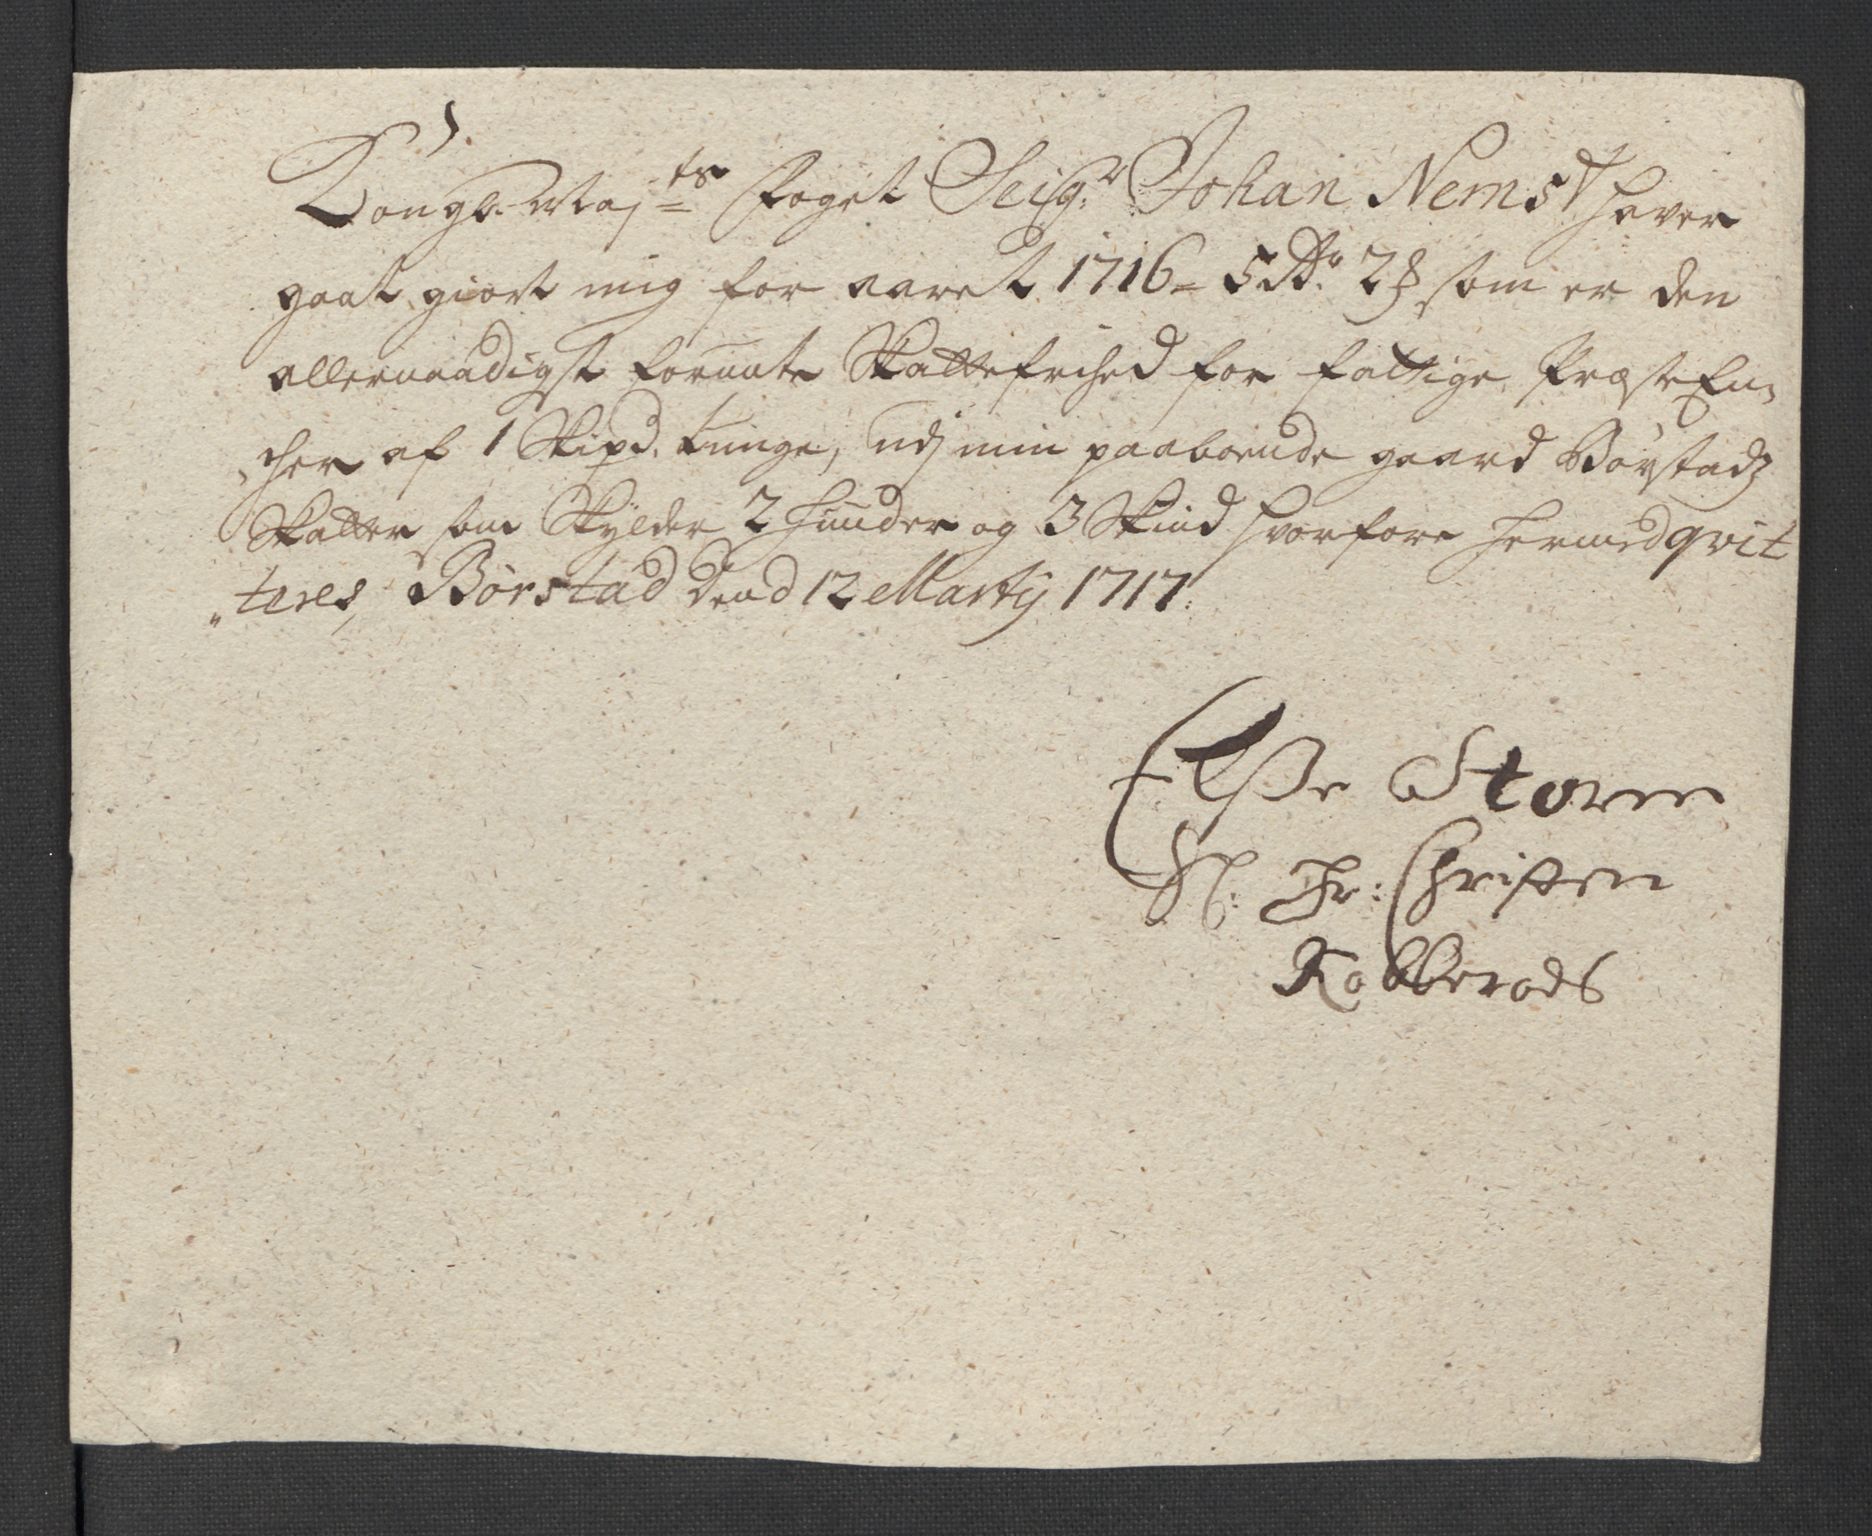 Kongl. Maj:ts Foget Seigr: Johan Nemst haver
gaat giort mig for aaret 1716 - 5 Rdr. 2 ß som er den
allernaadigst forunte Skattefrihed for fattige Præste En„
„cher af 1 Skipd. tunge, udj min paaboende gaard Börstadz
Skatter som Skylder 2 Huuder og 3 Skind hvorfore hermed qvit
„teres, Börstad Dend 12 Martij 1717.
Elsße Storm
Sl: Hr: Christen
Kobberøds